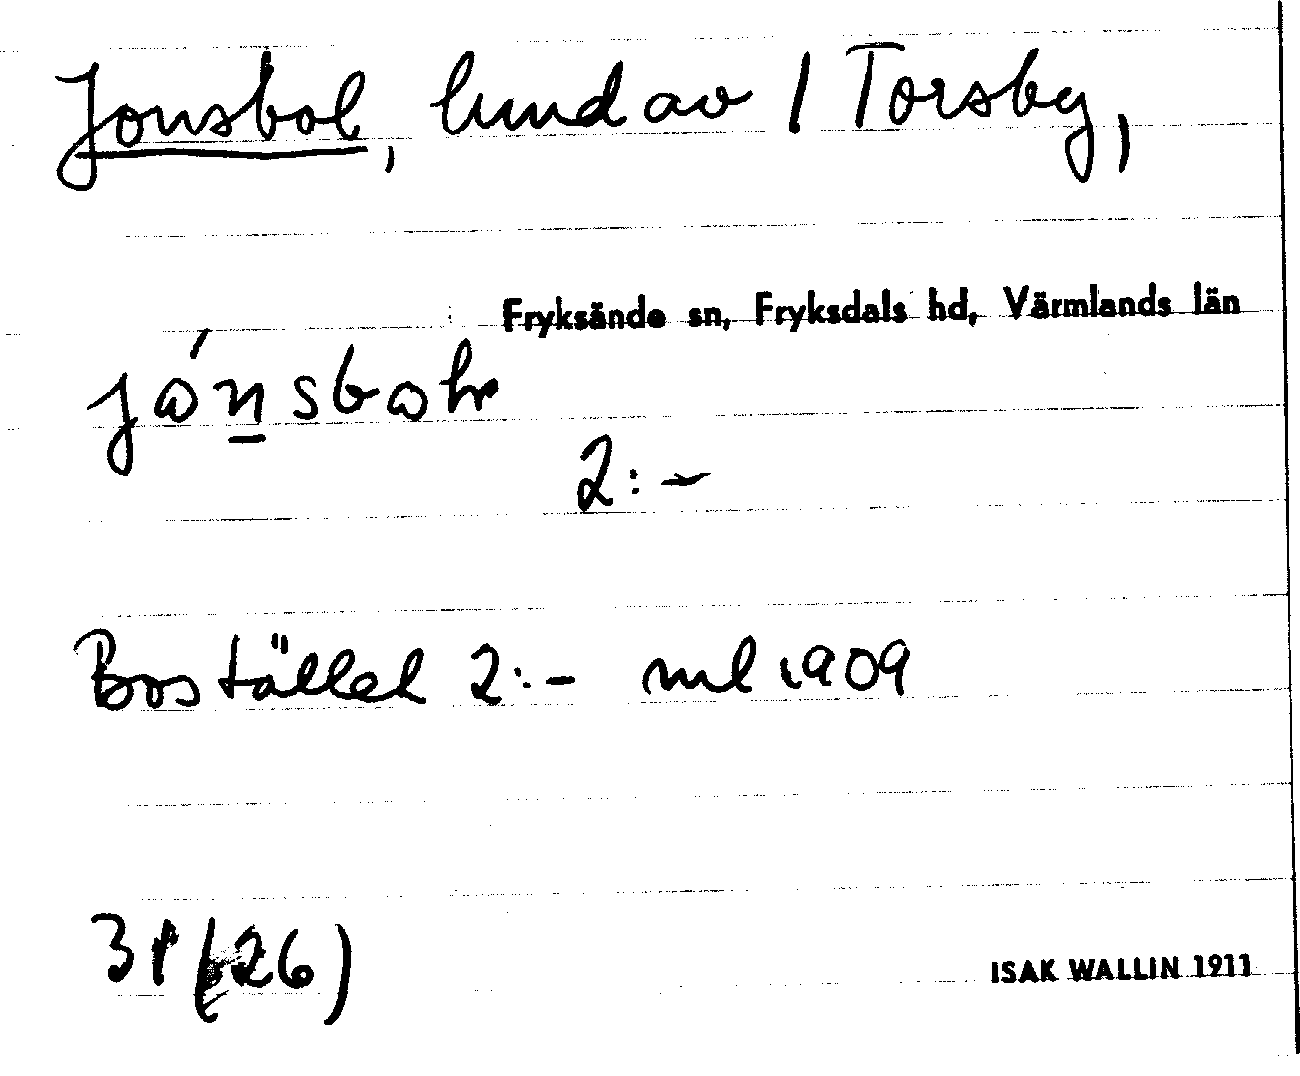 Jonsbol, lund av 1 Torsby,
Fryksände sn, Fryksdals hd, Värmlands län
2:-
Bostället 2:- ml 1909
31 (26)
ISAK WALLIN 1911